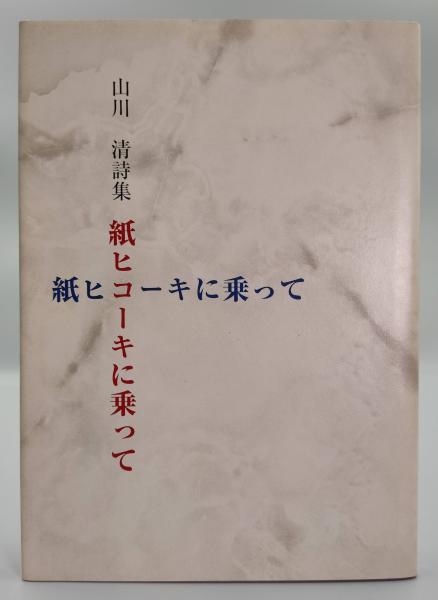 山川 清詩集
紙ヒコーキに乗って
紙ヒコーキに乗って